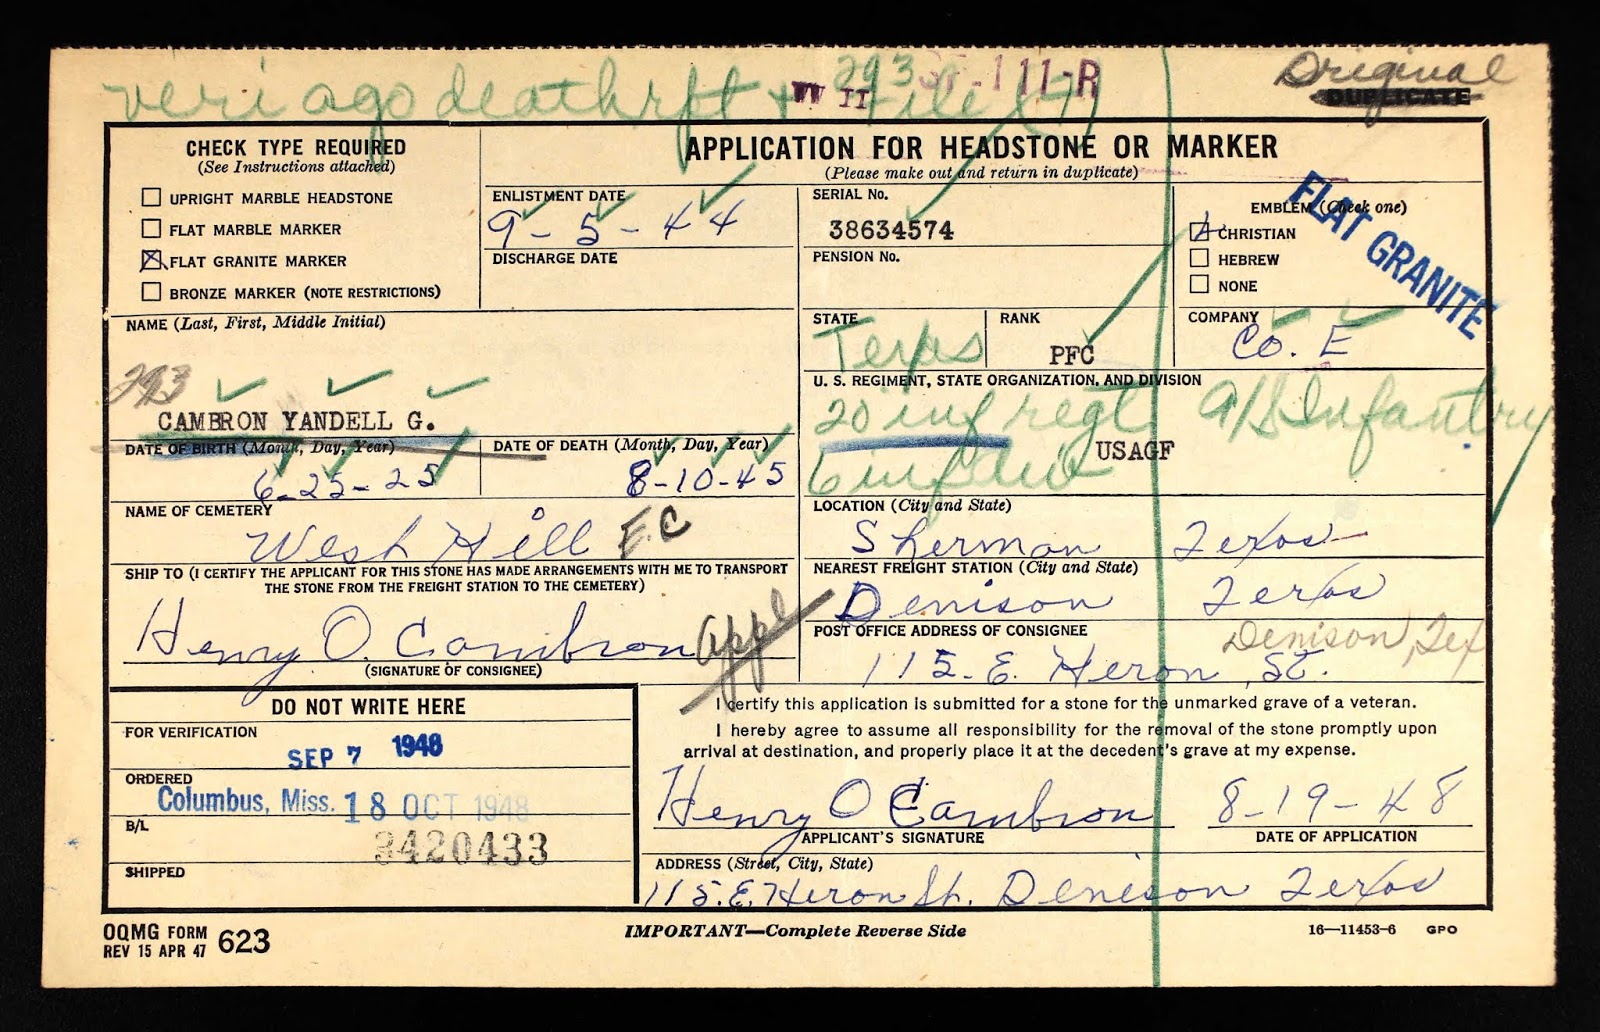 veri ago death rpt + file
293
WW II
111-R
Original
DUPLICATE
CHECK TYPE REQUIRED
(See Instructions attached)
UPRIGHT MARBLE HEADSTONE
FLAT MARBLE MARKER
FLAT GRANITE MARKER
BRONZE MARKER (NOTE RESTRICTIONS)
APPLICATION FOR HEADSTONE OR MARKER
(Please make out and return in duplicate)
ENLISTMENT DATE
9-5-44
DISCHARGE DATE
SERIAL No.
38634574
PENSION No.
EMBLEM (Check one)
CHRISTIAN
HEBREW
NONE
FLAT GRANITE
NAME (Last, First, Middle Initial)
293
CAMBRON YANDELL G.
STATE
Texas
RANK
PFC
COMPANY
Co. E
U. S. REGIMENT, STATE ORGANIZATION, AND DIVISION
20 inf regt A/S Infantry
USAGF
6 inf div
DATE OF BIRTH (Month, Day, Year)
6-25-25
DATE OF DEATH (Month, Day, Year)
8-10-45
NAME OF CEMETERY
West Hill E.C
LOCATION (City and State)
Sherman Texas
SHIP TO (I CERTIFY THE APPLICANT FOR THIS STONE HAS MADE ARRANGEMENTS WITH ME TO TRANSPORT
THE STONE FROM THE FREIGHT STATION TO THE CEMETERY)
Henry O. Cambron appl
(SIGNATURE OF CONSIGNEE)
NEAREST FREIGHT STATION (City and State)
Denison Texas
POST OFFICE ADDRESS OF CONSIGNEE
Denison, Tex
115. E. Heron St.
DO NOT WRITE HERE
FOR VERIFICATION
SEP 7 1948
ORDERED
Columbus, Miss. 18 OCT 1948
B/L
3420433
SHIPPED
I certify this application is submitted for a stone for the unmarked grave of a veteran.
I hereby agree to assume all responsibility for the removal of the stone promptly upon
arrival at destination, and properly place it at the decedent's grave at my expense.
Henry O Cambron 8-19-48
APPLICANT'S SIGNATURE
DATE OF APPLICATION
ADDRESS (Street, City, State)
115. E. Heron St. Denison Texas
OQMG FORM
REV 15 APR 47 623
IMPORTANT—Complete Reverse Side
16—11453-6 GPO